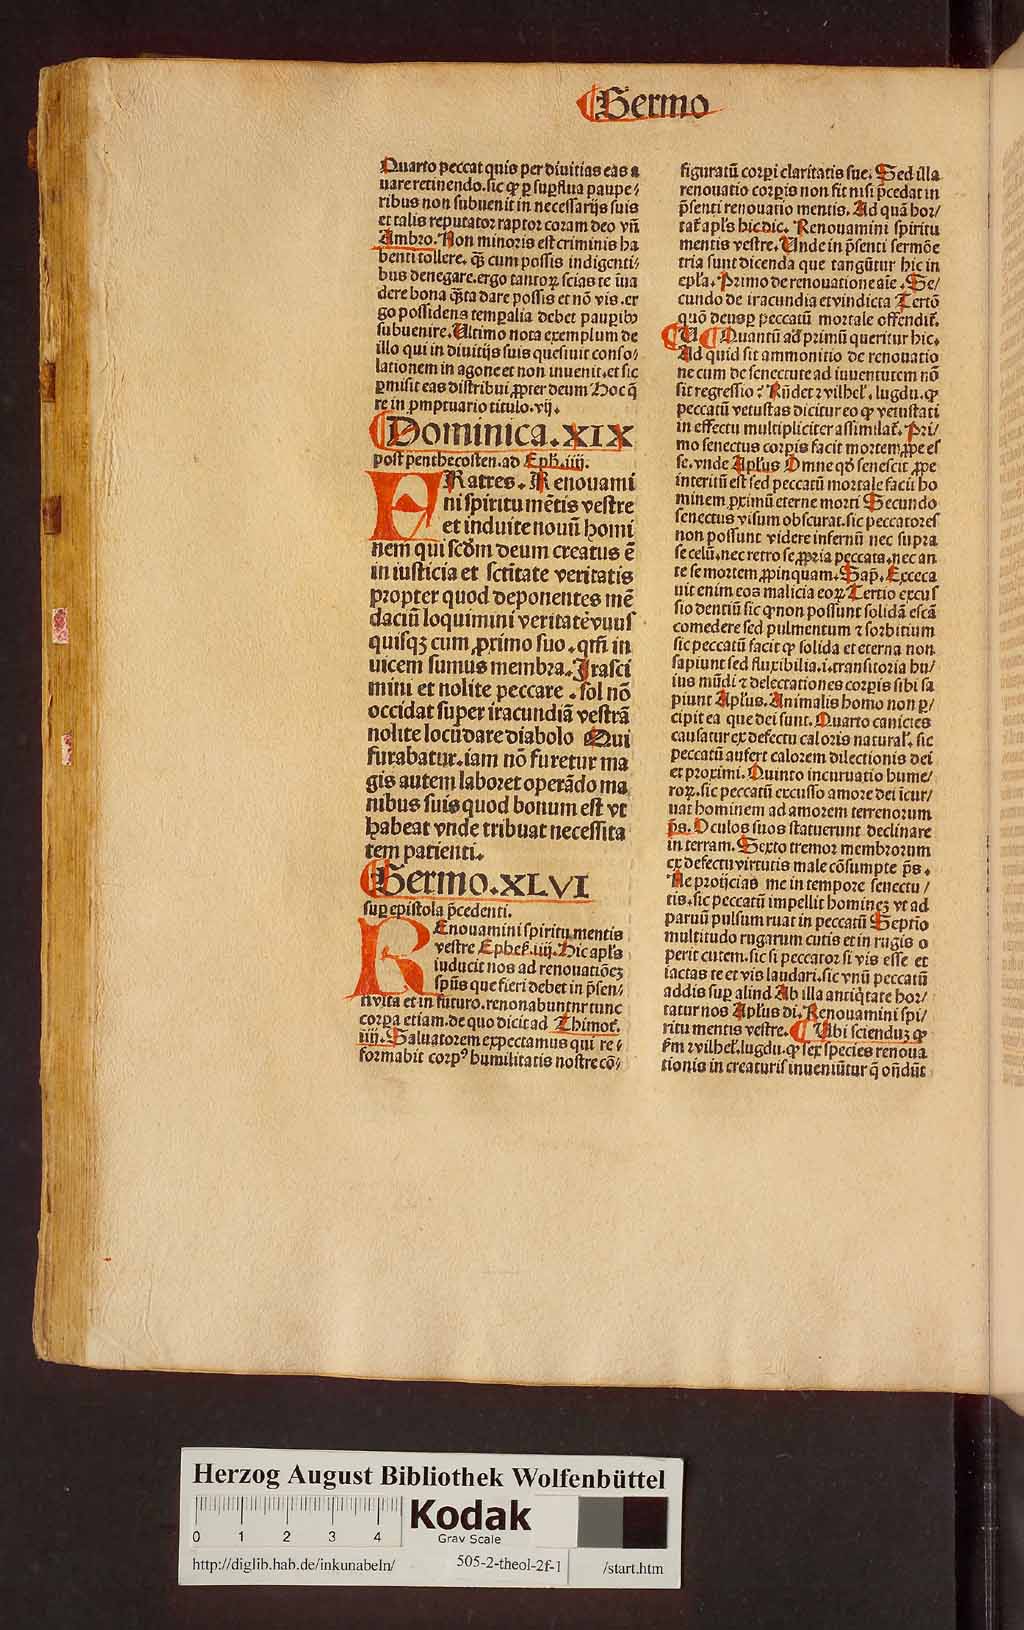 Sermo
Quarto peccat quis per diuitias eas a
uare retinendo. sic qꝙ ꝑ suꝑflua paupe/
ribus non subuenit in necessarijs suis
et talis reputator raptor coram deo vñ
Ambro. Non minoris est criminis ha
benti tollere. qꝫ cum possis indigenti/
bus denegare. ergo tantoꝝ scias te iua
dere bona qͣta dare possis et nō vis. er
go possidens temꝑalia debet pauꝑibꝰ
subuenire. Ultimo nota exemplum de
illo qui in diuitijs suis quesiuit conso/
lationem in agone et non inuenit. et sic
ꝑmisit eas distribui ꝓpter deum Hoc q̄
re in ꝓmptuario titulo. vij.
Dominica. XIX
post penthecosten. ad Eph. iiij.
FRatres. Renouami
ni spiritu mētis vestre
et induite nouū homi
nem qui scḋm deum creatus ē
in iusticia et sctītate veritatis
propter quod deponentes mē
daciū loquimini veritatē vnus
quisqꝫ cum ꝓximo suo. qm̄ in
uicem sumus membra. Irasci
mini et nolite peccare. sol nō
occidat super iracundiā vestrā
nolite locū dare diabolo Qui
furabatur. iam nō furetur ma
gis autem laboret operādo ma
nibus suis quod bonum est vt
habeat vnde tribuat necessita
tem patienti.
Sermo. XLVI
suꝑ epistola p̄cedenti.
REnouamini spiritu mentis
vestre Epheẜ. iiij. Hic apl's
iuducit nos ad renouatiōeꝫ
spūs que fieri debet in p̄sen/
ti vita et in futuro. renonabuntnr tunc
corꝑa etiam. de quo dicit ad Thimot.
iiij. Saluatorem expectamus qui re/
formabit corpꝰ humilitatis nostre cō/
figuratū corꝑi claritatis sue. Sed illa
renouatio corꝑis non fit nisi p̄cedat in
p̄senti renouatio mentis. Ad quā hor/
tat' apl's hic dic. Renouamini spiritu
mentis vestre. Unde in p̄senti sermōe
tria sunt dicenda que tangūtur hic in
epl'a. Primo de renouatione aīe. Se/
cundo de iracundia et vindicta Tertō
quō deus ꝑ peccatū mortale offendit'.
A Quantū ad primū queritur hic.
Ad quid sit ammonitio de renouatio
ne cum de senectute ad iuuentutem nō
sit regressio? Rn̄det vvilhel'. lugdu. ꝙ
peccatū vetustas dicitur eo ꝙ vetustati
in effectu multipliciter assimilat'. Pri/
mo senectus corꝑis facit mortem ꝓpe es
se. vnde Apl'us Omne qḋ senescit ꝓpe
interitū est sed peccatū mortale facit ho
minem ꝓximū eterne morti Secundo
senectus visum obscurat. sic peccatores
non possunt videre infernū nec supra
se celū. nec retro se ꝓpria peccata. nec an
te se mortem ꝓpinquam. Sap. Exceca
uit enim eos malicia eoꝝ Tertio excus
sio dentiū sic ꝙ non possunt solidā escā
comedere sed pulmentum ⁊ sorbitium
sic peccatū facit ꝙ solida et eterna non
sapiunt sed fluxibilia. i. transitoria hu/
ius mūdi ⁊ delectationes corꝑis sibi sa
piunt Apl'us. Animalis homo non ꝑ/
cipit ea que dei sunt. Quarto canicies
causatur ex defectu caloris natural'. sic
peccatū aufert calorem dilectionis dei
et proximi. Quinto incuruatio hume/
roꝝ. sic peccatū excusso amore dei īcur/
uat hominem ad amorem terrenorum
p̄s. Oculos suos statuerunt declinare
in terram. Sexto tremor membrorum
ex defectu virtutis male cōsumpte p̄s.
Ne proijcias me in tempore senectu/
tis. sic peccatū impellit homineꝫ vt ad
paruū pulsum ruat in peccatū Septīo
multitudo rugarum cutis et in rugis o
perit cutem. sic si peccator si vis esse et
iactas te et vis laudari. sic vnū peccatū
addis suꝑ aliud Ab illa antiq̇tate hor/
tatur nos Apl'us di. Renouamini spi/
ritu mentis vestre. Ubi sciendnꝫ ꝙ
ẜm vvilhel'. lugdu. ꝙ sex species renoua
tionis in creaturis inueniūtur q̄ oñdūt
Herzog August Bibliothek Wolfenbüttel
0 1 2 3 4
Kodak
Gray Scale
http://diglib.hab.de/inkunabeln/ 505-2-theol-2f-1 /start.htm